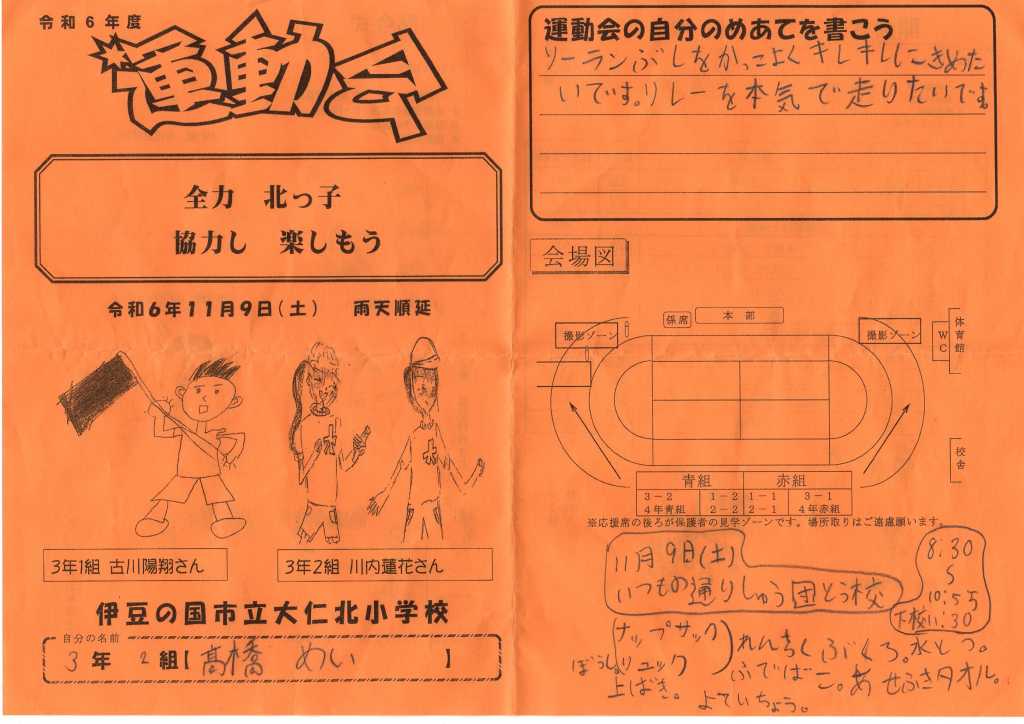 令和6年度
運動会
全力 北っ子
協力し 楽しもう
令和6年11月9日(土) 雨天順延
3年1組 古川陽翔さん
3年2組 川内蓮花さん
伊豆の国市立大仁北小学校
自分の名前
3年 2組【高橋 めい】
運動会の自分のめあてを書こう
ソーランぶしをかっこよくキレキレにきめた
いです。リレーを本気で走りたいです。
会場図
係席 本部
撮影ゾーン 撮影ゾーン
WC 体育館
校舎
青組 赤組
3-2 1-2 1-1 3-1
4年青組 2-2 2-1 4年赤組
※応援席の後ろが保護者の見学ゾーンです。場所取りはご遠慮願います。
11月9日(土)
いつもの通りしゅう団とう校
8:30
〜
10:55
下校11:30
ナップサック
リュック
ぼうし。
上ばき。
れんらくぶくろ。水とう。
ふでばこ。あせふきタオル。
よていちょう。